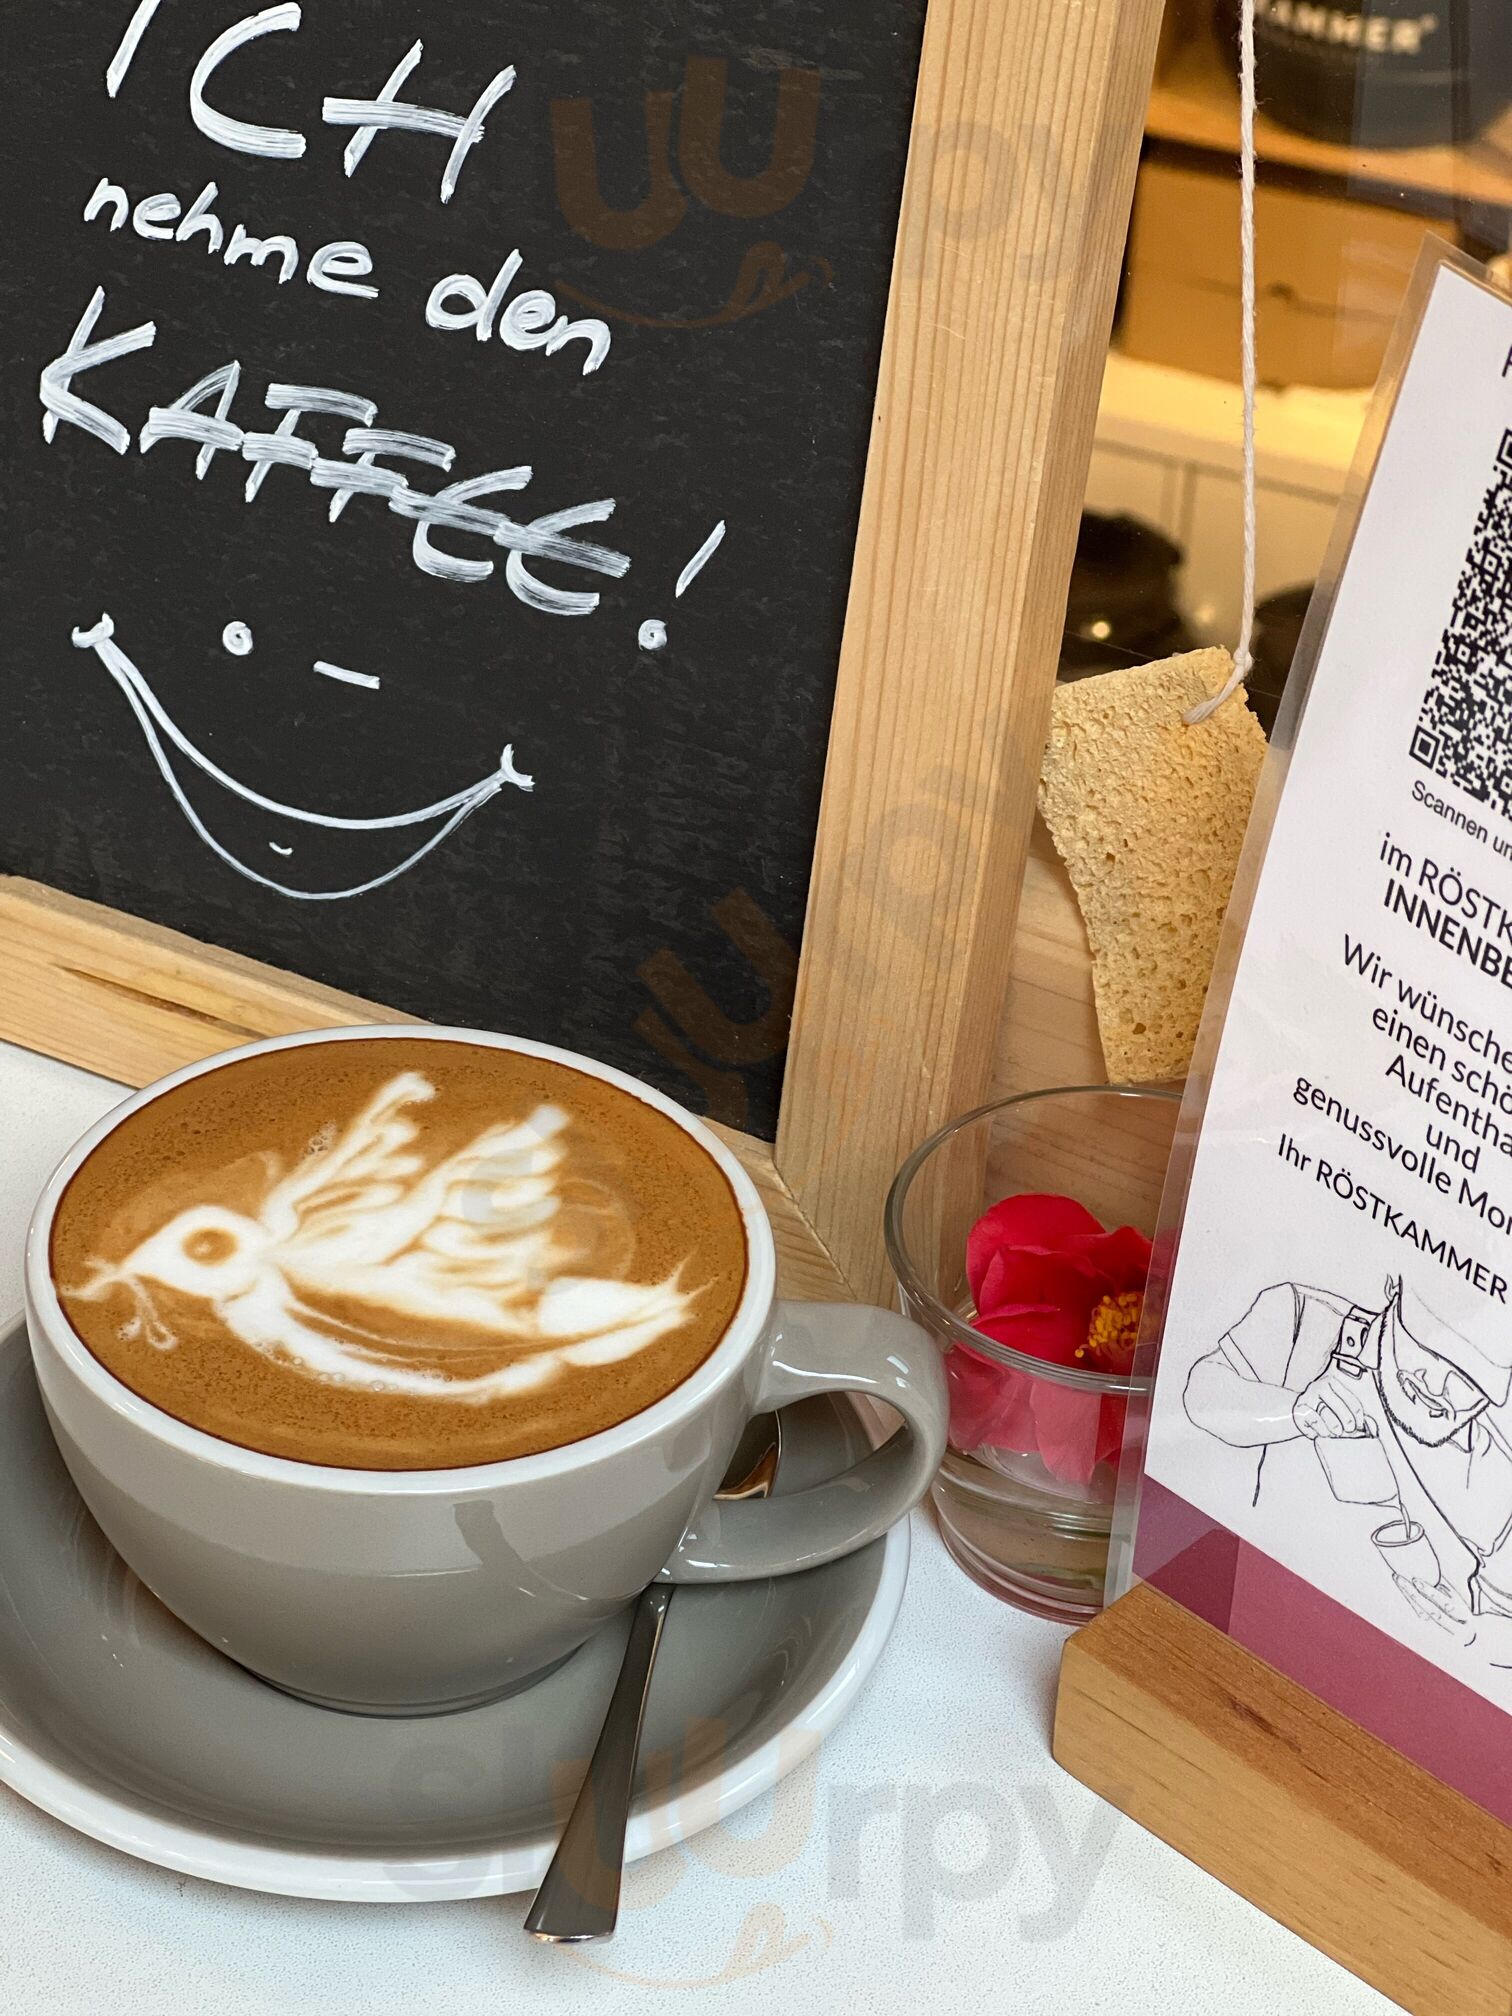 ICH
nehme den
KAFFEE!
Scannen
im
INNENBE
Wir wünsche
einen schö
Aufentha
und
genussvolle
Ihr RÖSTKAMMER
sluurpy